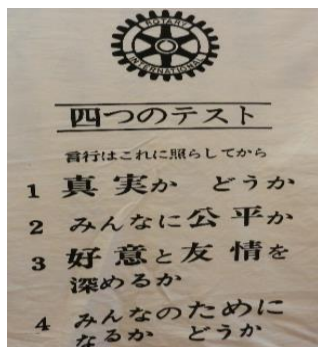 ROTARY
INTERNATIONAL
四つのテスト
言行はこれに照らしてから
1 真実か どうか
2 みんなに公平か
3 好意と友情を
深めるか
4 みんなのために
なるか どうか